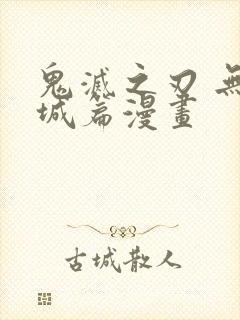 鬼滅之刃 無
城篇漫畫
古城散人